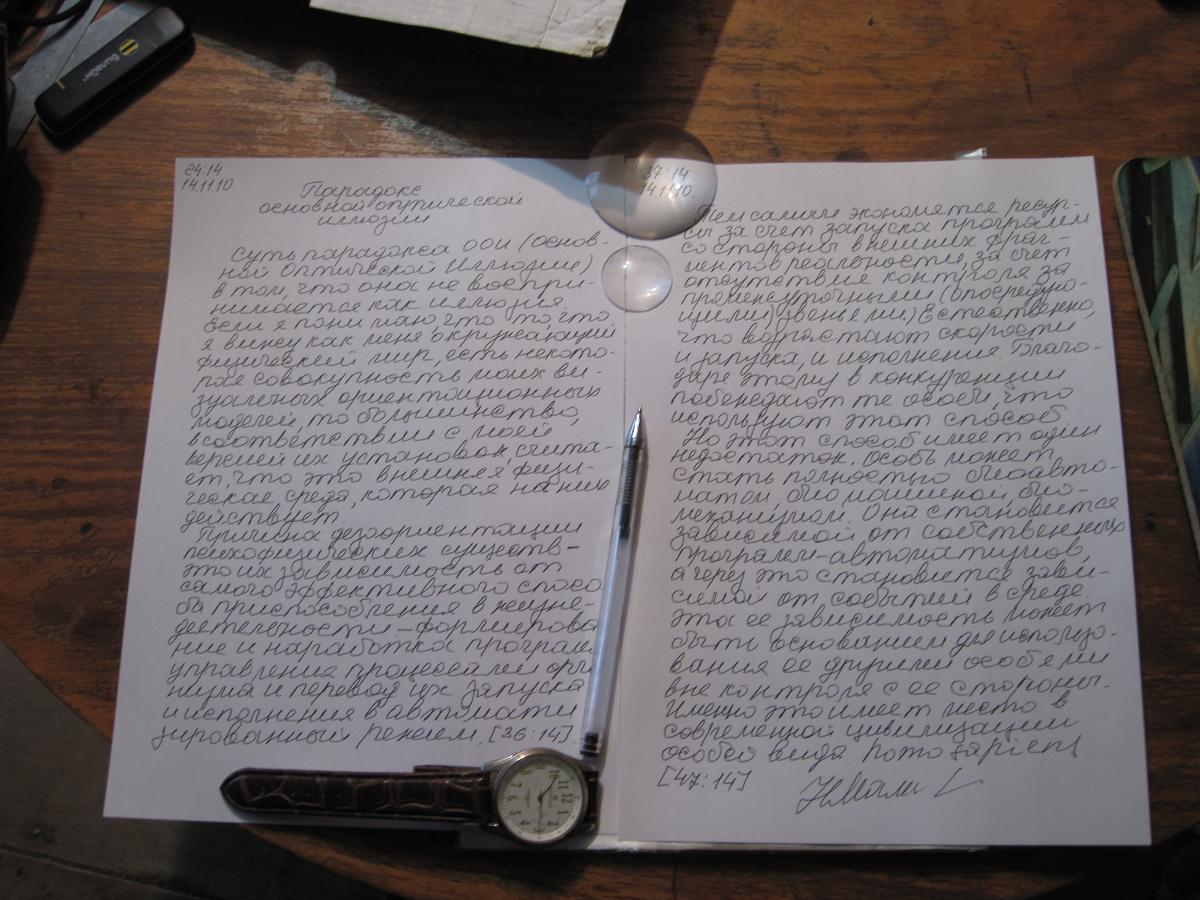 Билайн
24:14
14.11.10
Парадокс
основной оптической
иллюзии
Суть парадокса ООИ (Основ-
ной Оптической Иллюзии)
в том, что она не воспри-
нимается как иллюзия.
Если я понимаю что то что
я вижу как меня окружающий
физический мир, есть некото-
рая совокупность моих ви-
зуальных ориентационных
моделей, то большинство,
в соответствии с моей
версией их установок счита-
ет, что это внешняя физи-
ческая среда, которая на них
действует.
Причина дезориентации
психофизических существ –
это их зависимость от
самого эффективного спосо
ба приспособления в жизне-
деятельности – формирова
ние и наработка программ
управления процессами орга
низма и перевод их запуска
и исполнения в автомати
зированный режим. [36:14]
37:14
14.11.10.
Тем самым экономятся ресур-
сы за счет запуска программ
со стороны внешних фраг-
ментов реальности, за счет
отсутствия контроля за
промежуточными (опосредую-
щими) звеньями.) Естественно,
что возрастают скорости
и запуска, и исполнения. Благо-
даря этому в конкуренции
побеждают те особи, что
используют этот способ.
Но этот способ имеет один
недостаток. Особь может
стать полностью биоавто-
матом, биомашиной, био-
механизмом. Она становится
зависимой от собственных
программ-автоматизмов,
а через это становится зави-
симой от событий в среде.
Эта ее зависимость может
быть основанием для использо-
вания ее другими особями
вне контроля с ее стороны.
Именно это имеет место в
современной цивилизации
особей вида homo sapiens.
[47:14]
12
1
2
3
4
5
6
7
8
9
10
11